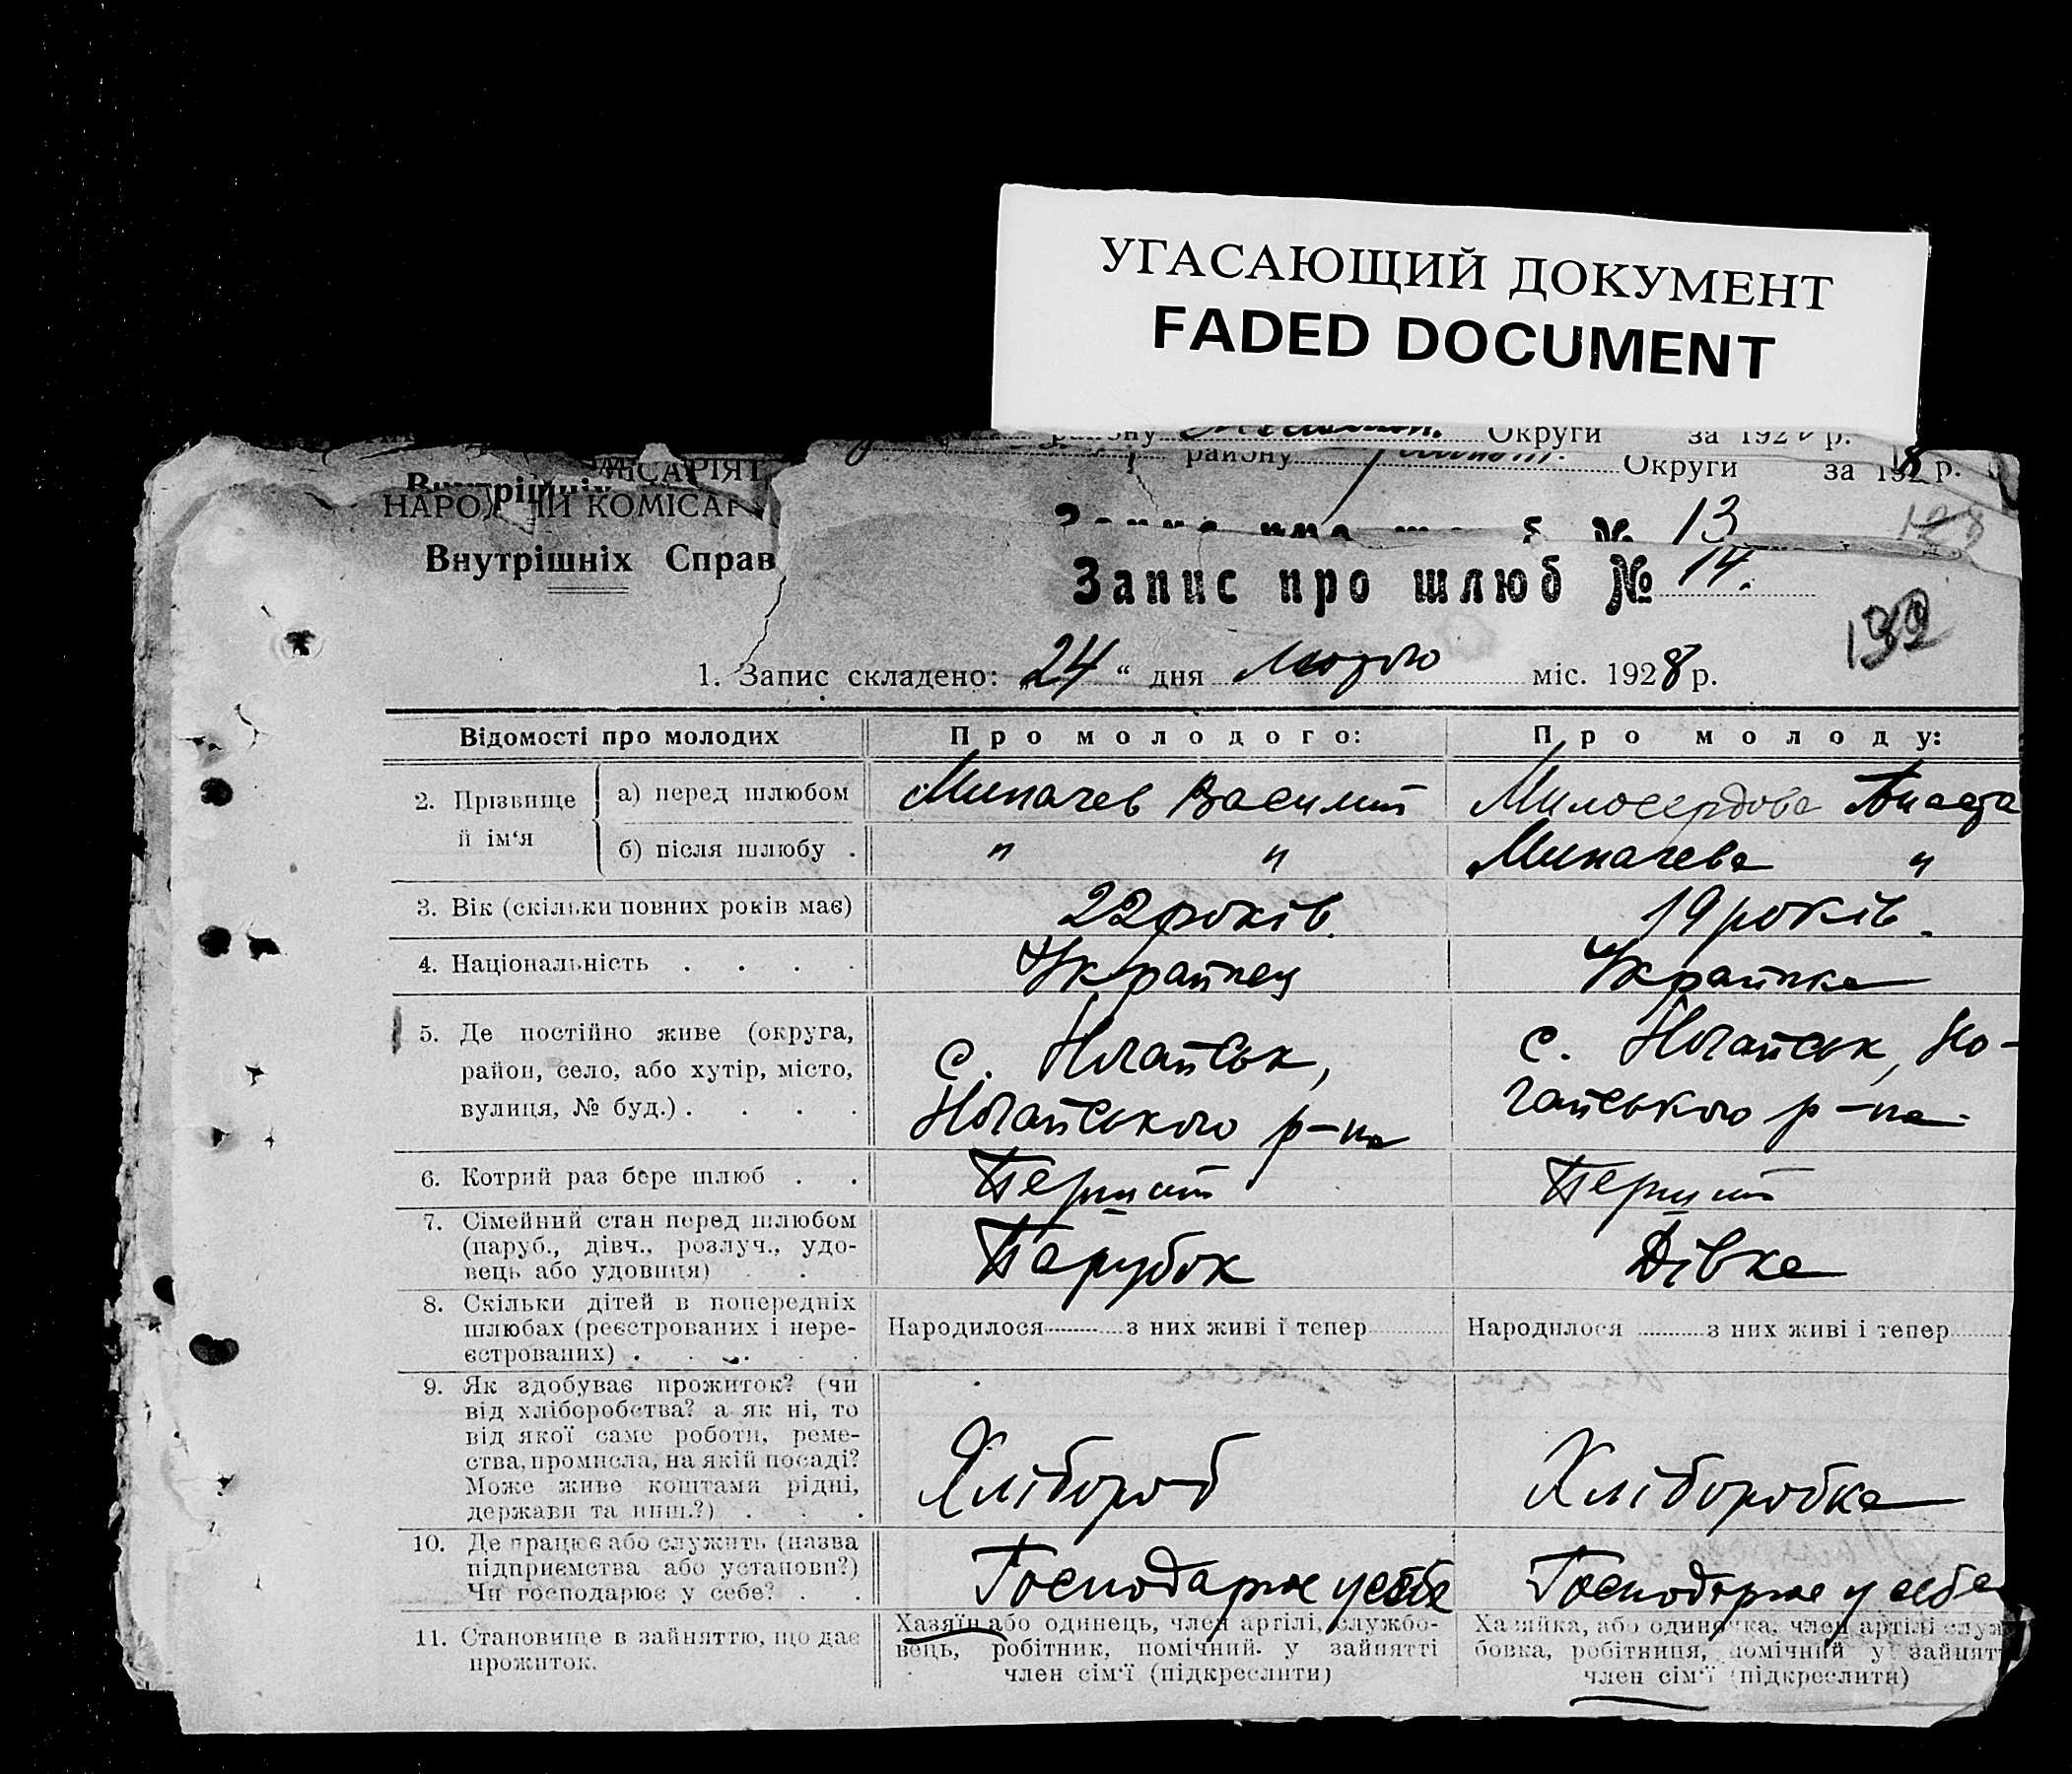 УГАСАЮЩИЙ ДОКУМЕНТ
FADED DOCUMENT
району Округи за 192 р.
району Округи за 1928 р.
Внутрішніх
НАРОДНИЙ КОМІСАР
Внутрішніх Справ
№ 13
128
Запис про шлюб № 14.
139
1. Запис складено: „24“ дня Лютого міс. 1928 р.
Відомості про молодих
Про молодого:
Про молоду:
2. Прізвище й ім‘я
а) перед шлюбом
Василий
Милосердова
б) після шлюбу .
" "
"
3. Вік (скільки повних років має)
22 років.
19 років.
4. Національність . . . .
Українец
Українка
5. Де постійно живе (округа,
район, село, або хутір, місто,
вулиця, № буд.) . . . .
с. Ногайськ,
Ногайського р-на
с. Ногайськ, Но-
гайського р-на.
6. Котрий раз бере шлюб . .
Перший
Перший
7. Сімейний стан перед шлюбом
(паруб., дівч., розлуч., удо-
вець або удовиця) . .
Парубок
Дівка
8. Скільки дітей в попередніх
шлюбах (реєстрованих і нере-
єстрованих) . . . .
Народилося ........... з них живі і тепер
Народилося ........... з них живі і тепер
9. Як здобуває прожиток? (чи
від хліборобства? а як ні, то
від якої саме роботи, реме-
ства, промисла, на якій посаді?
Може живе коштами рідні,
держави та инш.?) . . .
Хлібороб
Хліборобка
10. Де працює або служить (назва
підприємства або установи?)
Чи господарює у себе? . .
Господарює у себе
Господарює у себе
11. Становище в зайняттю, що дає
прожиток.
Хазяїн або одинець, член артілі, службо-
вець, робітник, помічний. у зайнятті
член сім‘ї (підкреслити)
Хазяйка, або одиночка, член артілі служ
бовка, робітниця, помічний у зайнят
член сім‘ї (підкреслити)